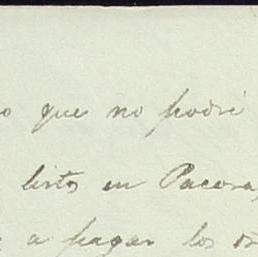 o que no podré
listos en Pacora,
a pagar los